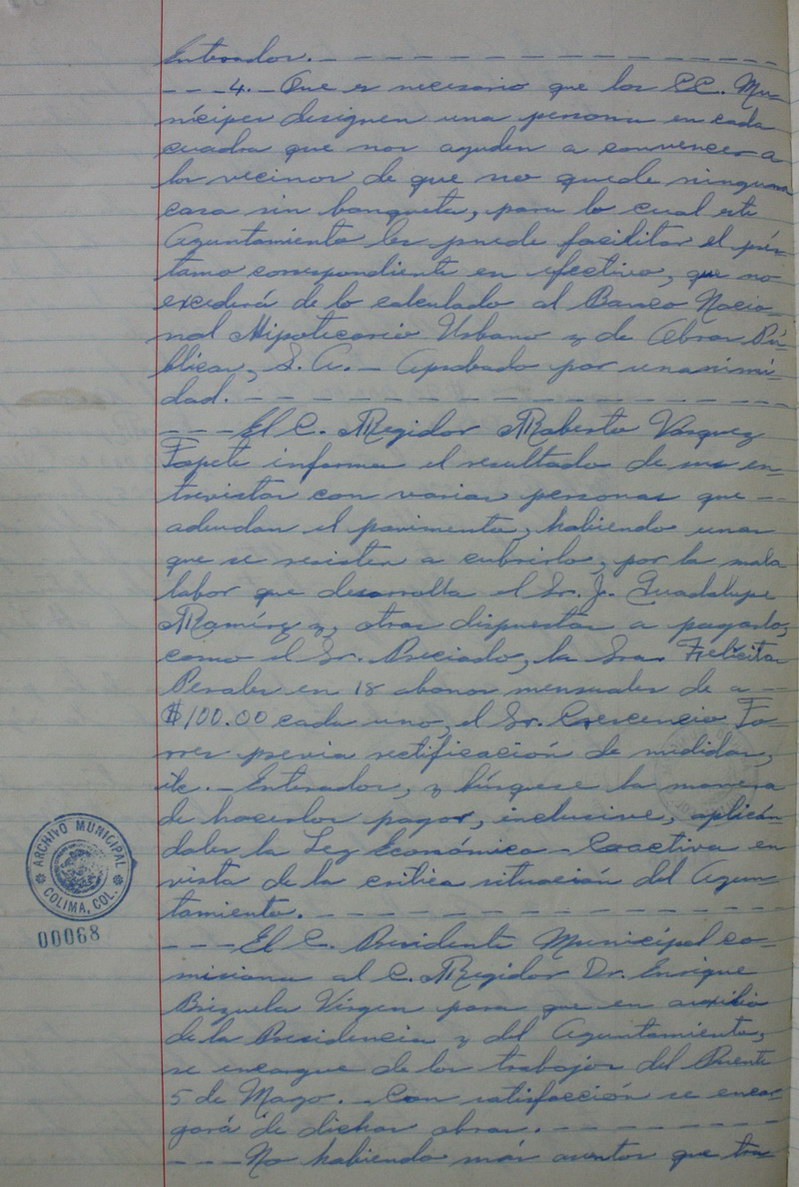 Enterados. - - - - - - - - - - - - - - -
- - - 4. - Que es necesario que los CC. Mu-
nícipes designen una persona en cada
cuadra que nos ayuden a convencer a
los vecinos de que no quede ninguna
casa sin banqueta, para lo cual este
Ayuntamiento les puede facilitar el prés-
tamo correspondiente en efectivo, que no
excederá de lo calculado al Banco Nacio-
nal Hipotecario Urbano y de Obras Pú-
blicas, S. A. - Aprobado por unanimi-
dad. - - - - - - - - - - - - - - -
- - - El C. Regidor Roberto Vázquez
Tapete informa el resultado de sus en-
trevistas con varias personas que - -
adeudan el pavimento, habiendo unas
que se resisten a cubrirlo, por la mala
labor que desarrolla el Sr. J. Guadalupe
Ramírez y, otras dispuestas a pagarlo,
como el Sr. Preciado, la Sra. Felícitas
Perales en 18 abonos mensuales de a - -
$100.00 cada uno, el Sr. Crescencio To-
rres previa rectificación de medidas,
etc. - Enterados, y búsquese la manera
de hacerlos pagar, inclusive, aplicán-
doles la Ley Económica - Coactiva en
vista de la crítica situación del Ayun-
tamiento. - - - - - - - - - - - - -
- - - El C. Presidente Municipal co-
misiona al C. Regidor Dr. Enrique
Brizuela Virgen para que en auxilio
de la Presidencia y del Ayuntamiento,
se encargue de los trabajos del Puente
5 de Mayo. - Con satisfacción se encar
gará de dichas obras. - - - - - - - -
- - - No habiendo más asuntos que tra
ARCHIVO MUNICIPAL
COLIMA, COL.
00068